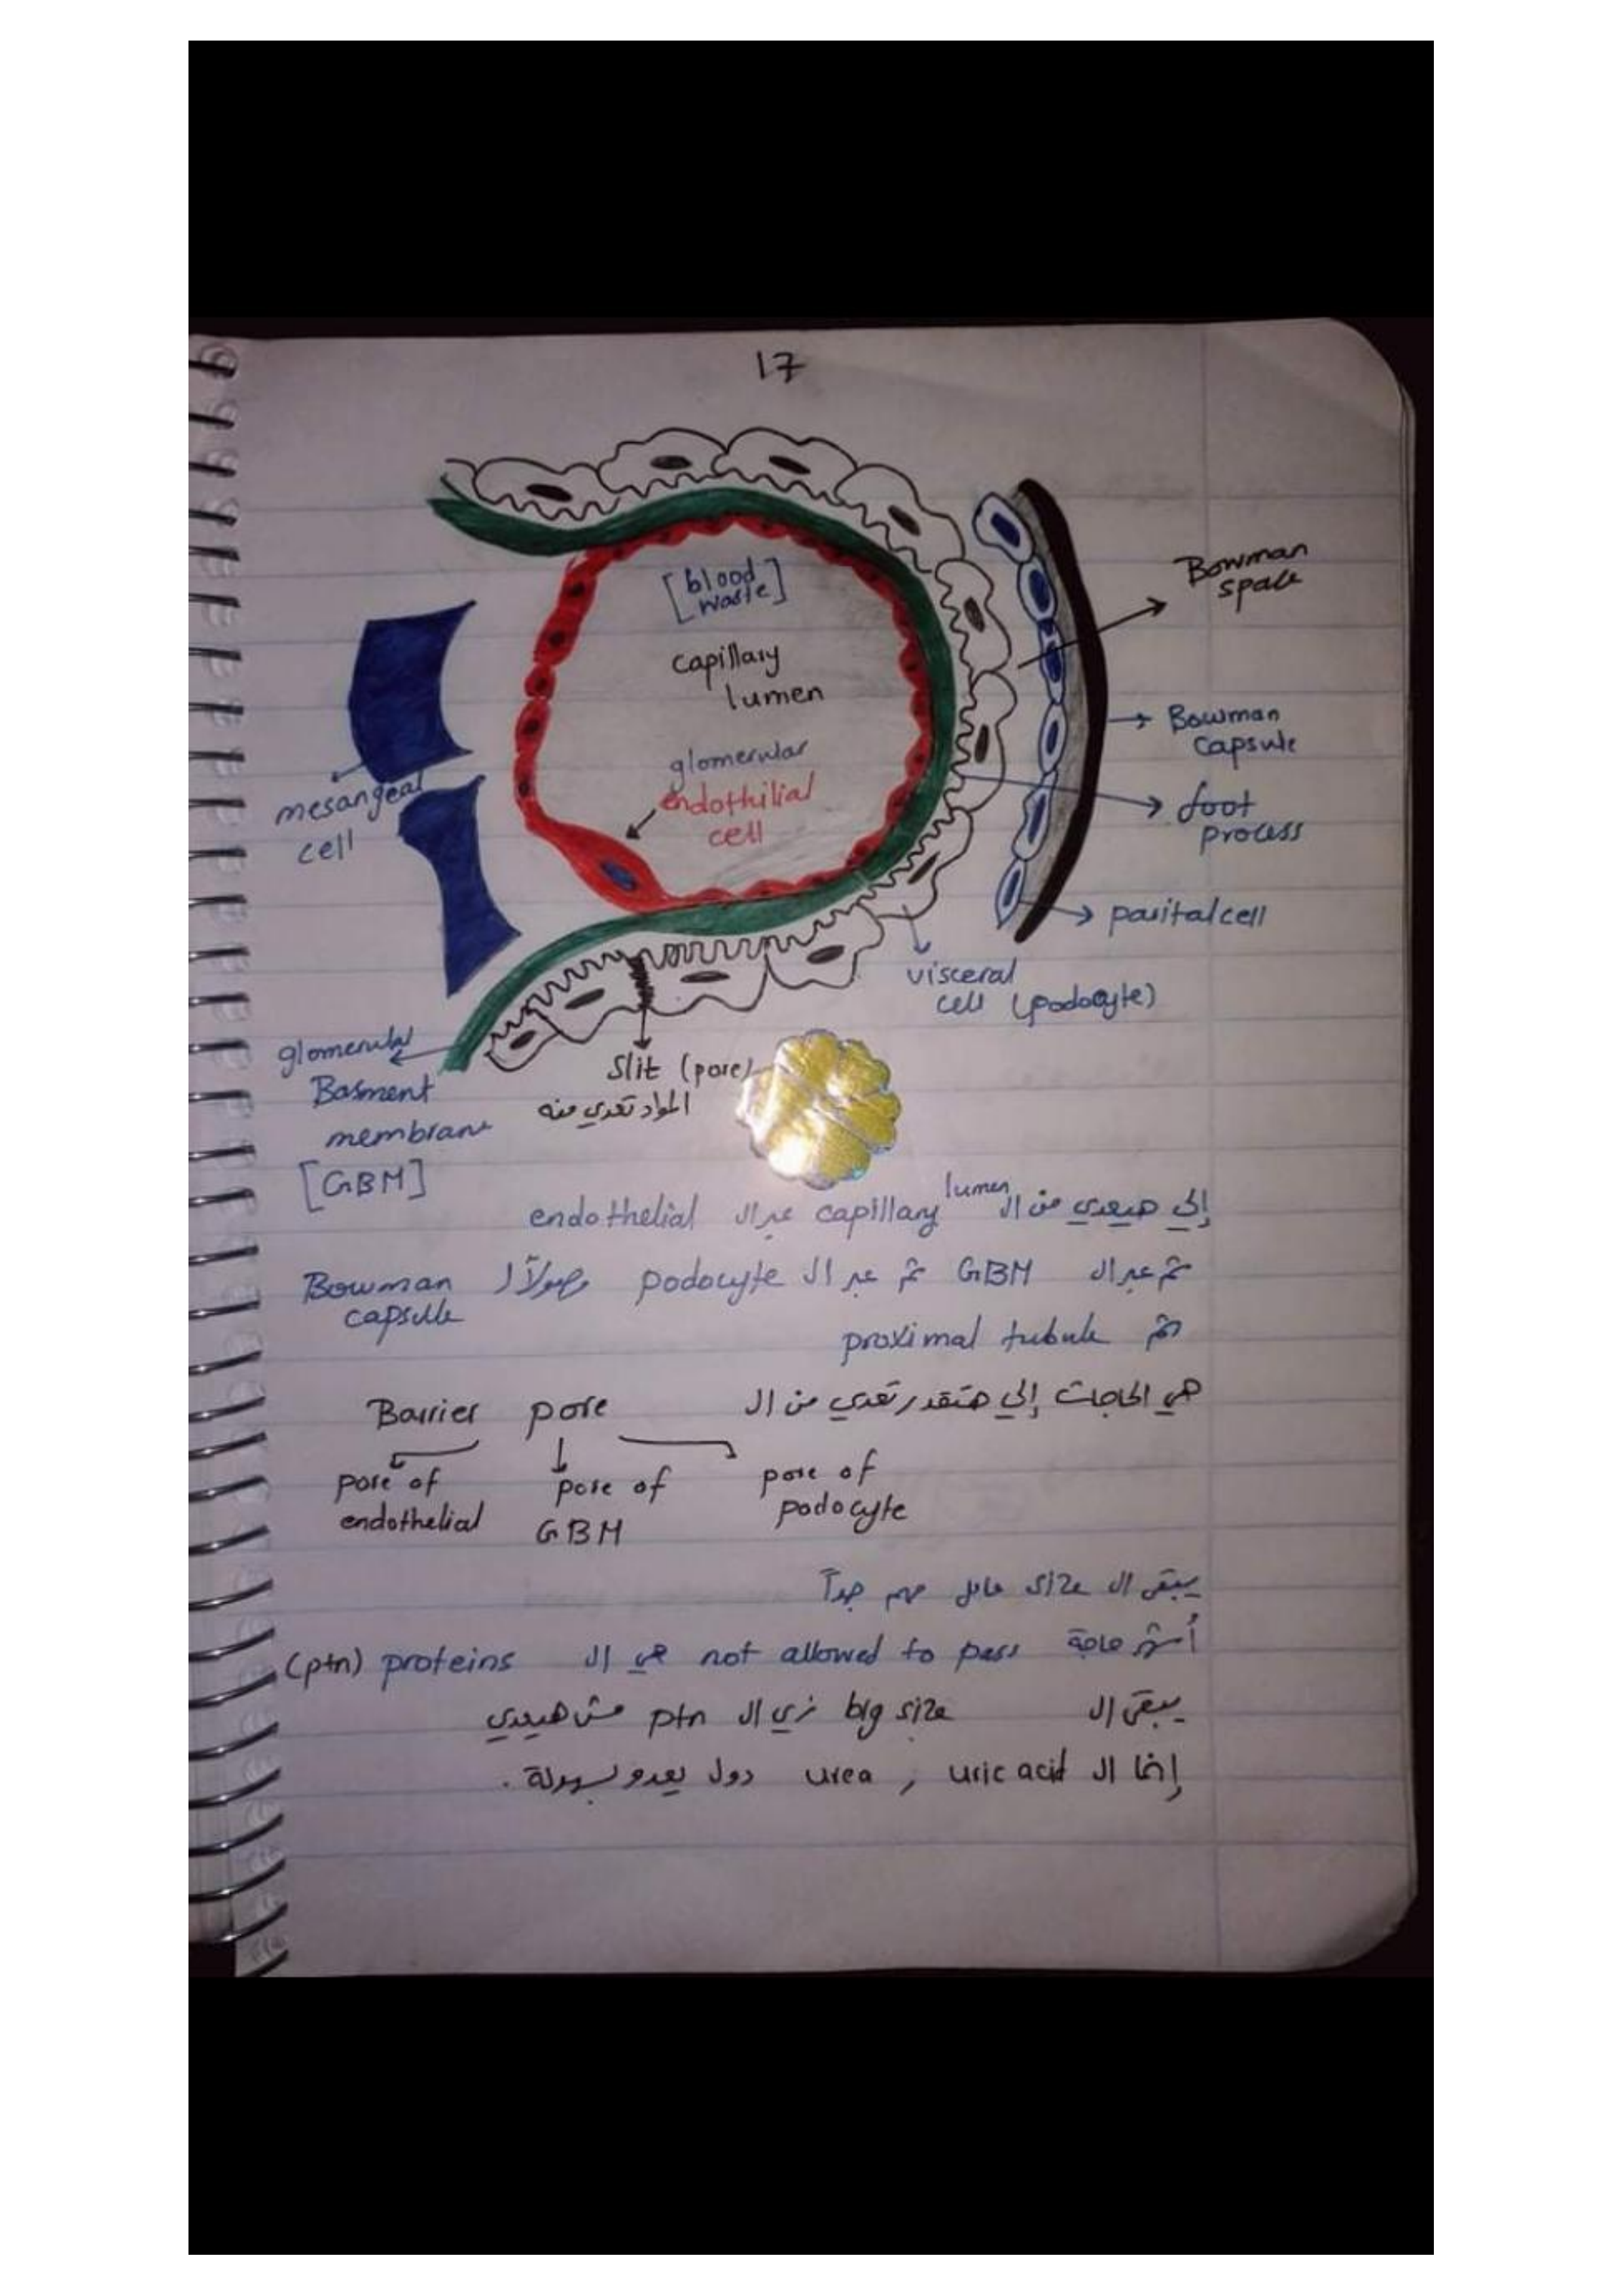 17
[blood
waste]
capillary
lumen
glomerular
endothilial
cell
Bowman
space
Bowman
capsule
foot
process
parital cell
visceral
cell (podocyte)
mesangeal
cell
glomerular
Basment
membrane
[GBM]
Slit (pore)
المواد تعدي منه
إلي هيعدي من ال capillary lumen عبر ال endothelial
ثم عبر ال GBM ثم عبر ال podocyte وصولاً ل Bowman
capsule
ثم proximal tubule
هي الحاجات إلي هتقدر تعدي من ال Barrier pore
pore of
endothelial
pore of
GBM
pore of
podocyte
يبقى ال size عامل مهم جداً
أشهر حاجة not allowed to pass هي ال proteins (ptn)
يبقى ال big size زي ال ptn مش هيعدي
إنما ال urea , uric acid دول يعدو بسهولة .